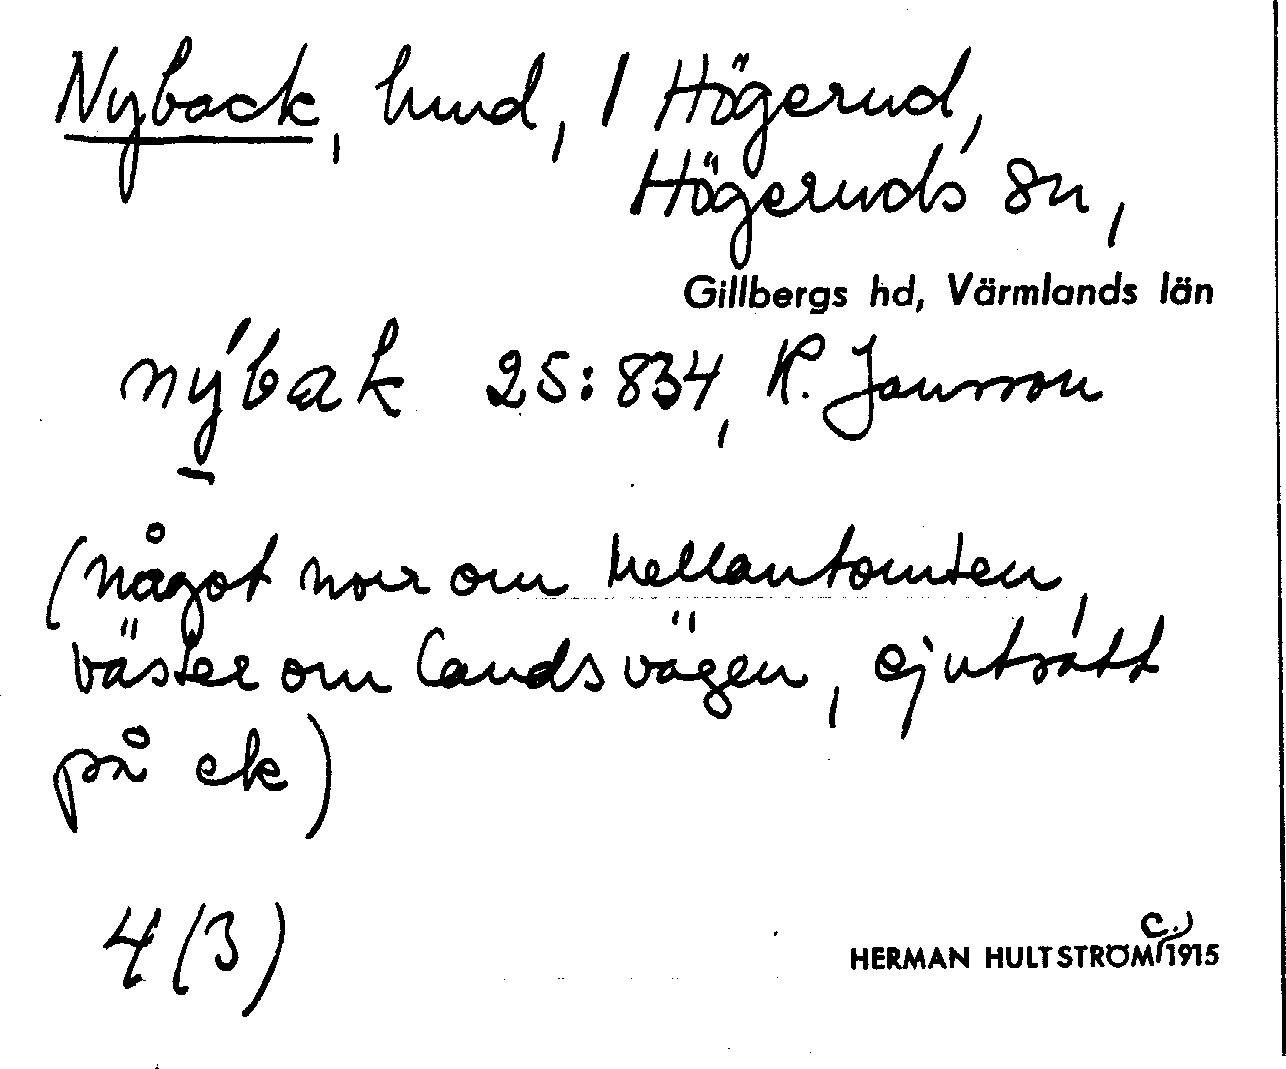 Nyback, hmd, 1 Högerud,
Högeruds sn,
Gillbergs hd, Värmlands län
nýbak 25:834, K. Jansson
(något norr om Mellantomten,
väster om landsvägen, ej utsatt
på ek)
4 (3)
HERMAN HULTSTRÖM (c.) 1915